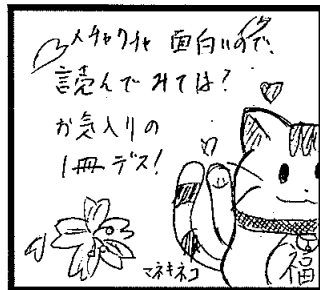 メチャクチャ 面白いので、
読んでみては?
お気入りの
1冊デス!
マネキネコ
福